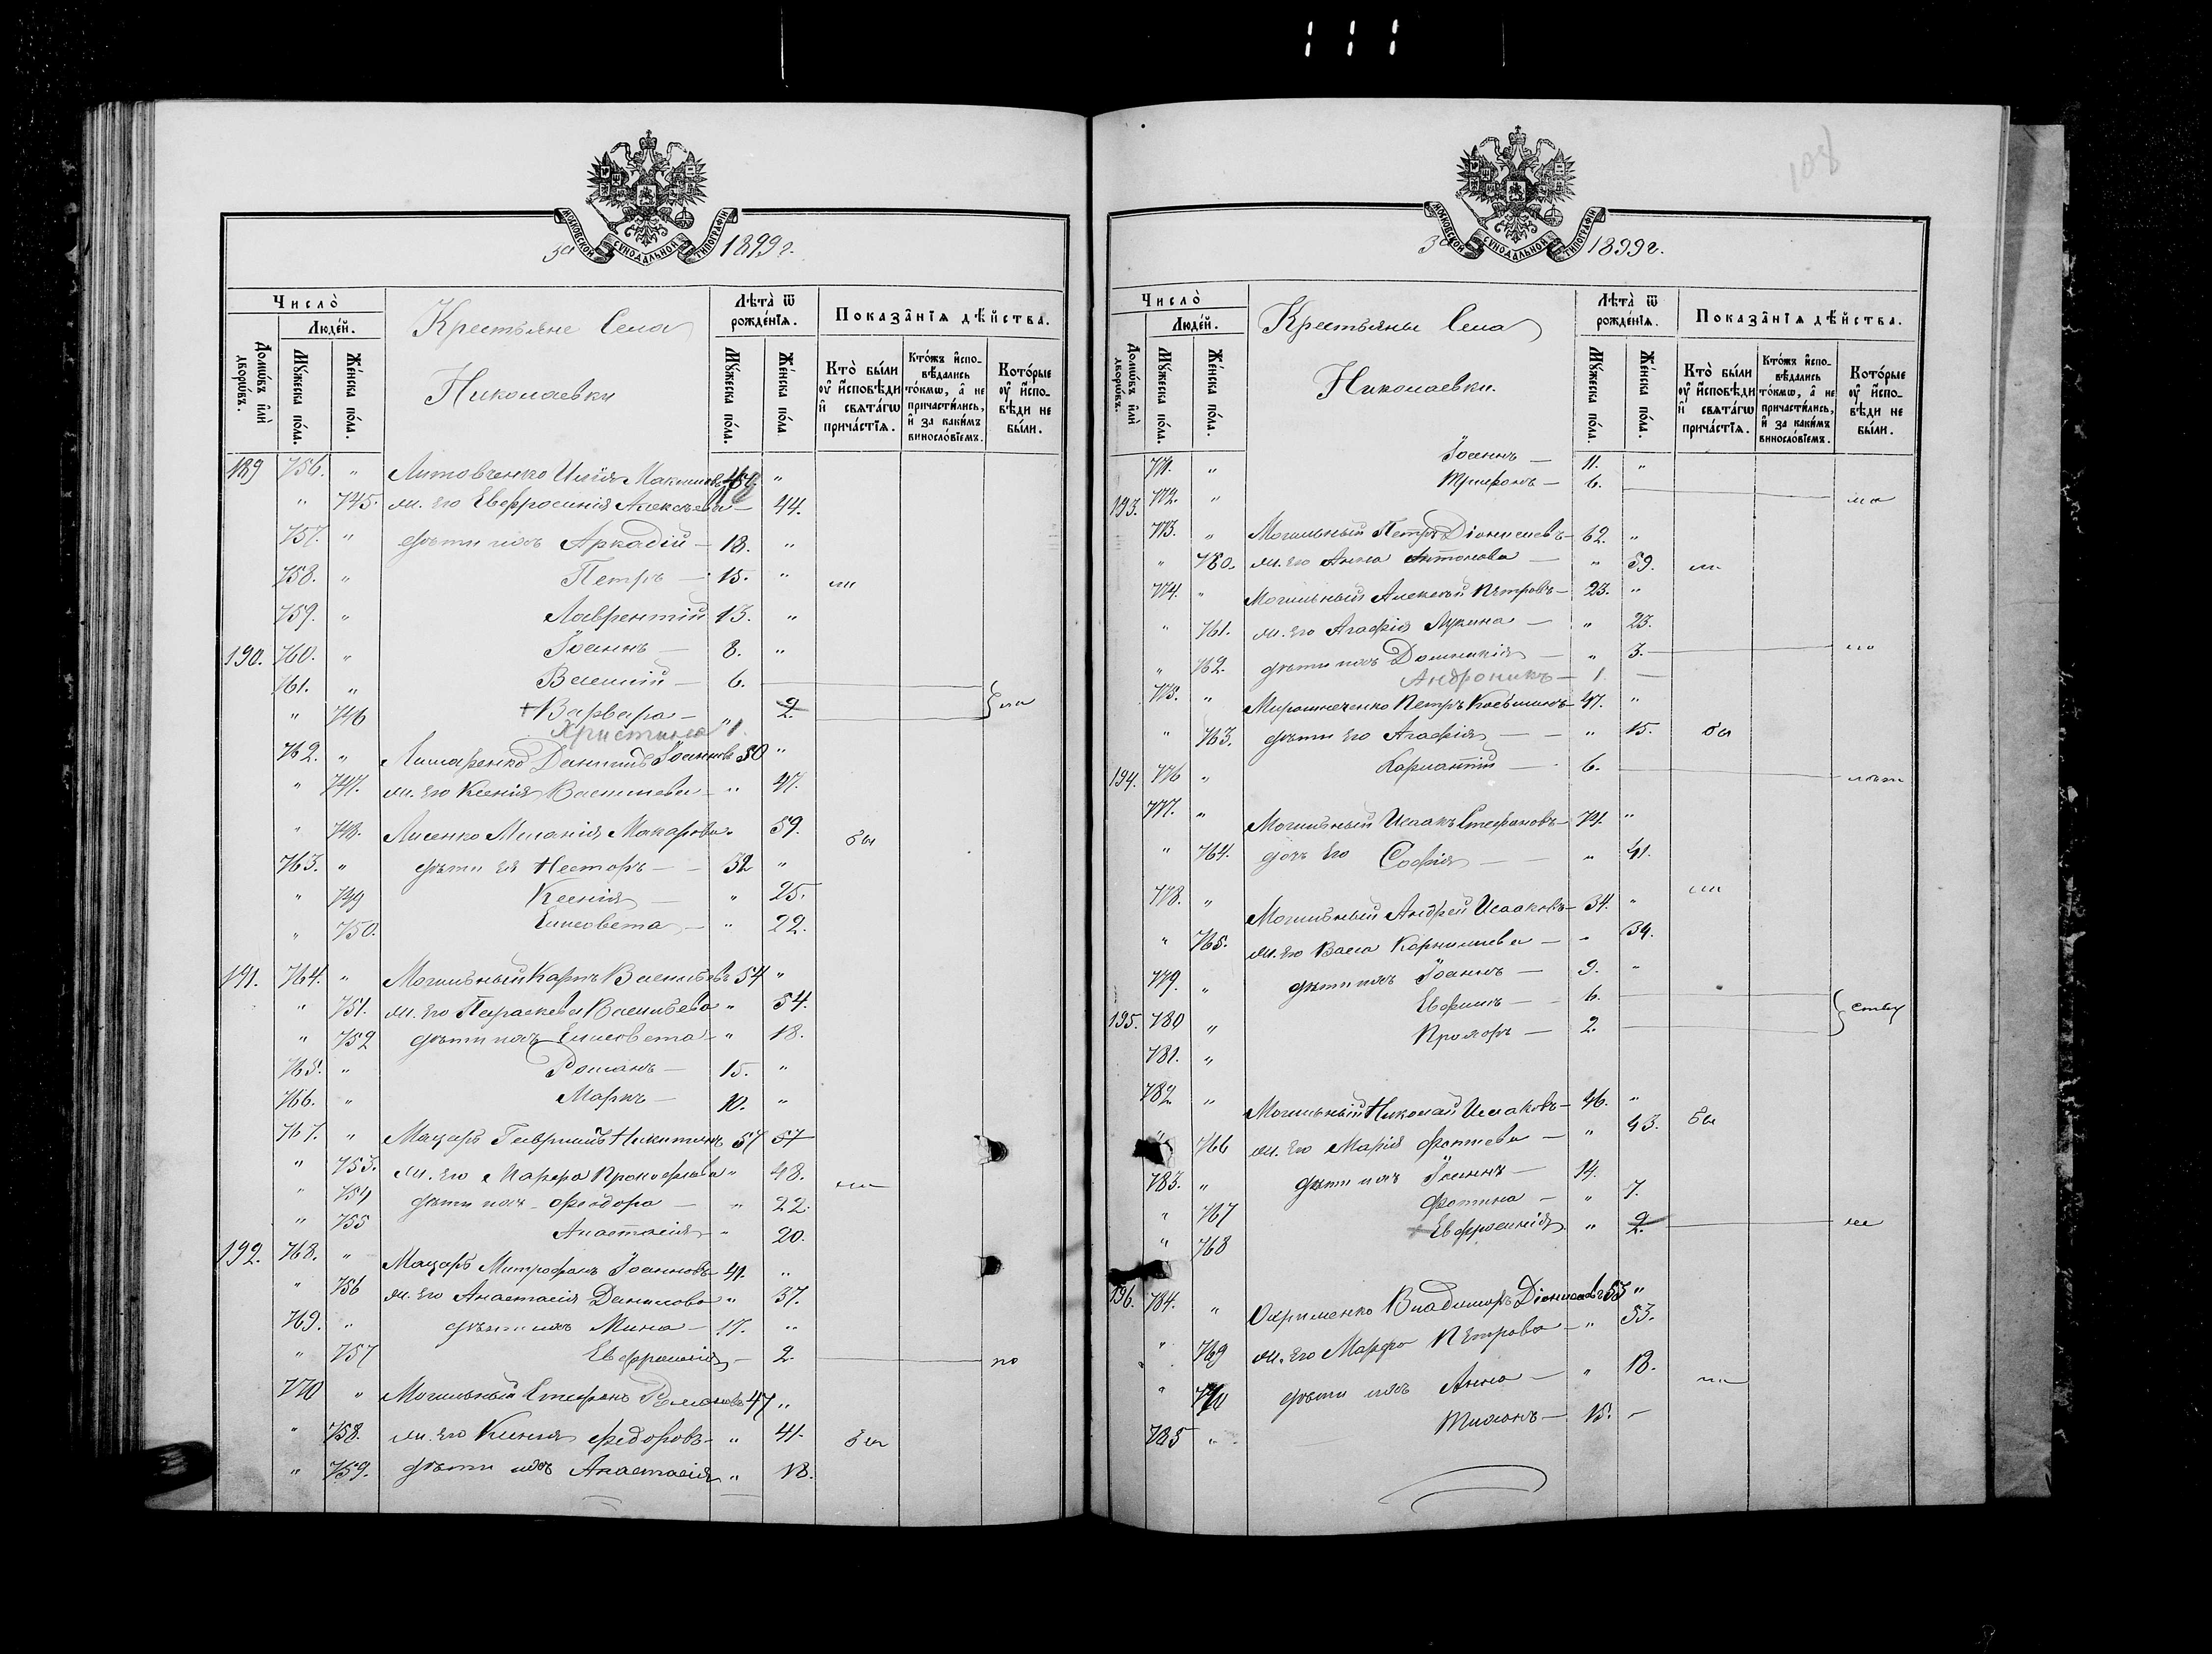 108
МОСКОВСКОЙ СУНОДАЛЬНОЙ ТИПОГРАФІИ
за 1899 г.
Число̀
Люде́й.
Домѡ́въ и҆лѝ дворѡ́въ.
Мꙋ́жеска по́ла.
Же́нска по́ла.
Крестьяне Села
Николаевки
Лѣ́та ѿ рожде́нїѧ.
Мꙋ́жеска по́ла.
Же́нска по́ла.
Показа̑нїѧ дѣ́йства.
Кто̀ бы́ли оу҆ и҆сповѣ́ди и҆ свѧта́гѡ прича́стїѧ.
Кто́жъ и҆спо-вѣ́дались то́кмѡ, а҆ не причасти́лись, и҆ за каки́мъ винословїемъ.
Кото́рые оу҆ и҆спо-вѣ́ди не бы́ли.
189 756. " Литовченко Илія Максимовъ "
" 745. ж. его Евфросинія Алексѣева — 44.
757. " дѣти ихъ Аркадій — 18. "
758. " Петръ — 15. " ли
759. " Лаврентій 13. "
190. 760. " Іоаннъ — 8. "
761. " Василій — 6.
" 746 + Варвара — " 2.
Христина 1.
762. " Данііилъ Іоанновъ 50 "
" 747. ж. его Ксенія Васильева — " 47.
" 748. Лисенко Меланія Макарова " 59. бы
763. " дѣти ея Несторъ — 32 "
" 749 Ксенія — " 25.
" 750. Елисавета — " 22.
191. 764. " Могильный Карпъ Васильевъ 54 "
" 751. ж. его Параскева Васильева " 54.
" 752 дѣти ихъ Елисавета — " 18.
765. " Романъ — 15. "
766. " Маркъ — 10. "
767. " Мацарь Гавріилъ Никитинъ 57 57
" 753. ж. его Марфа Прокофьева " 48. ли
" 754 дѣти ихъ Феодора — " 22.
" 755 Анастасія — " 20.
192. 768. " Мацарь Митрофанъ Іоанновъ 41. "
" 756 ж. его Анастасія Данилова " 37.
769. " дѣти ихъ Мина — 17. "
" 757 Евфросинія — 2. по
770 " Могильный Стефанъ Романовъ 47 "
" 758. ж. его Ксенія Федорова — " 41. бы
" 759. дѣти ихъ Анастасія " 18.
МОСКОВСКОЙ СУНОДАЛЬНОЙ ТИПОГРАФІИ
за 1899 г.
Число̀
Люде́й.
Домѡ́въ и҆лѝ дворѡ́въ.
Мꙋ́жеска по́ла.
Же́нска по́ла.
Крестьяны Села
Николаевки.
Лѣ́та ѿ рожде́нїѧ.
Мꙋ́жеска по́ла.
Же́нска по́ла.
Показа̑нїѧ дѣ́йства.
Кто̀ бы́ли оу҆ и҆сповѣ́ди и҆ свѧта́гѡ прича́стїѧ.
Кто́жъ и҆спо-вѣ́дались то́кмѡ, а҆ не причасти́лись, и҆ за каки́мъ винословїемъ.
Кото́рые оу҆ и҆спо-вѣ́ди не бы́ли.
771. " Іоаннъ — 11. "
193. 772. " Трифонъ — 6.
773. " Могильный Петръ Діонисіевъ — 62. "
" 760. ж. его Анна Антонова — " 59. ли
774. " Могильный Алексѣй Петровъ — 23. "
" 761. ж. его Агафія Лукина — " 23.
" 762. дѣти ихъ Домникія — " 3.
Андроникъ — 1. —
775. " Мирошниченко Петръ Косьминъ 47. "
" 763. дѣти его Агафія — — " 15. бы
194. 776 " 6.
777. " Могильный Исаакъ Стефановъ 71. "
" 764. дочь его Софія — — " 41.
778. " Могильный Андрей Исааковъ — 34. " ли
" 765. ж. его Васса — " 34.
779. " дѣти ихъ Іоаннъ — 9. "
195. 780 " Евфимъ — 6.
781. " Прохоръ — 2.
782. " Могильный Николай Исааковъ — 46. "
" 766 ж. его Марія Фоктева — " 43. бы
783. " дѣти ихъ Іоаннъ — 14.
" 767 Фотина — " 7.
" 768 + Евфросинія " 2.
196. 784. " Охрименко Владиміръ Діонисіевъ 55 "
" 769 ж. его Марфа Петрова — " 53.
" 770 дѣти ихъ Анна — " 18. ли
785 " Тихонъ — 15. —